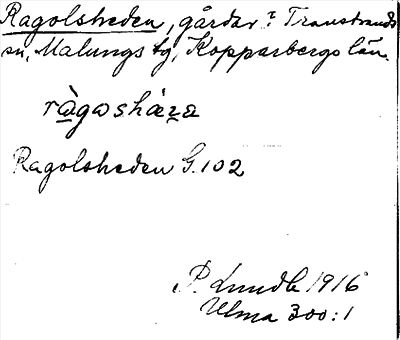 Ragolsheden, gårdar i Transtrands
sn, Malungs tg, Kopparbergs län.
ràgωshæza
Ragolsheden G. 102
P. Lundbl 1916
Ulma 300:1